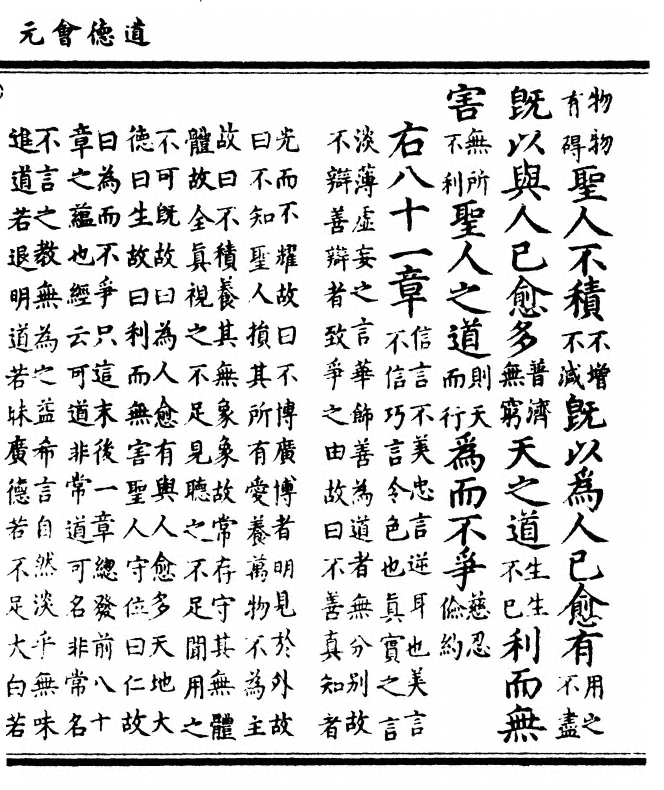 道德會元
物物有得聖人不積不增不減既以為人己愈有用之不盡
既以與人己愈多普濟無窮天之道生生不已利而無
害無所不利聖人之道則天而行為而不爭慈忍儉約
右八十一章信言不美忠言逆耳也美言
不信巧言令色也真實之言
淡薄虛妄之言華飾善為道者無分別故
不辯善辯者致爭之由故曰不善真知者
光而不耀故曰不博廣博者明見於外故
曰不知聖人損其所有愛養萬物不為主
故曰不積養其無象象故常存守其無體
體故全真視之不足見聽之不足聞用之
不可既故曰為人愈有與人愈多天地大
德曰生故曰利而無害聖人守位曰仁故
曰為而不爭只這末後一章總發前八十
章之蘊也經云可道非常道可名非常名
不言之教無為之益希言自然淡乎無味
進道若退明道若昧廣德若不足大白若